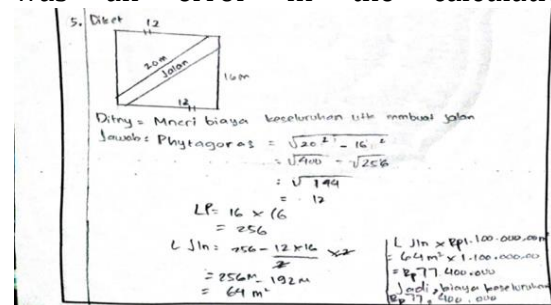 was an error in the calculati
5. Diket 12
20m
Jalan
16m
12
Ditny = Mncri biaya keseluruhan utk membuat jalan
Jawab: Phytagoras = √20² - 16²
= √400 - √256
= √144
= 12
LP = 16 x 16
= 256
L Jln = 256 - 12 x 16 / 2 x2
= 256m - 192m
= 64 m²
L Jln x Rp1.100.000.00m
= 64m² x 1.100.000.00
= Rp 77.400.000
Jadi, biaya keseluruhan
Rp 77,400.000